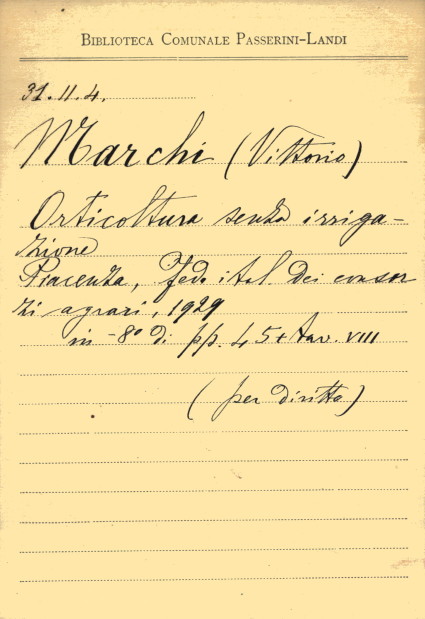 BIBLIOTECA COMUNALE PASSERINI-LANDI
31.II.4.
Marchi (Vittorio)
Orticoltura senza irriga-
zione
Piacenza, Fed. ital. dei consor
zi agrari, 1929
in-8° di pp. 45 + tav. VIII
(per diritto)